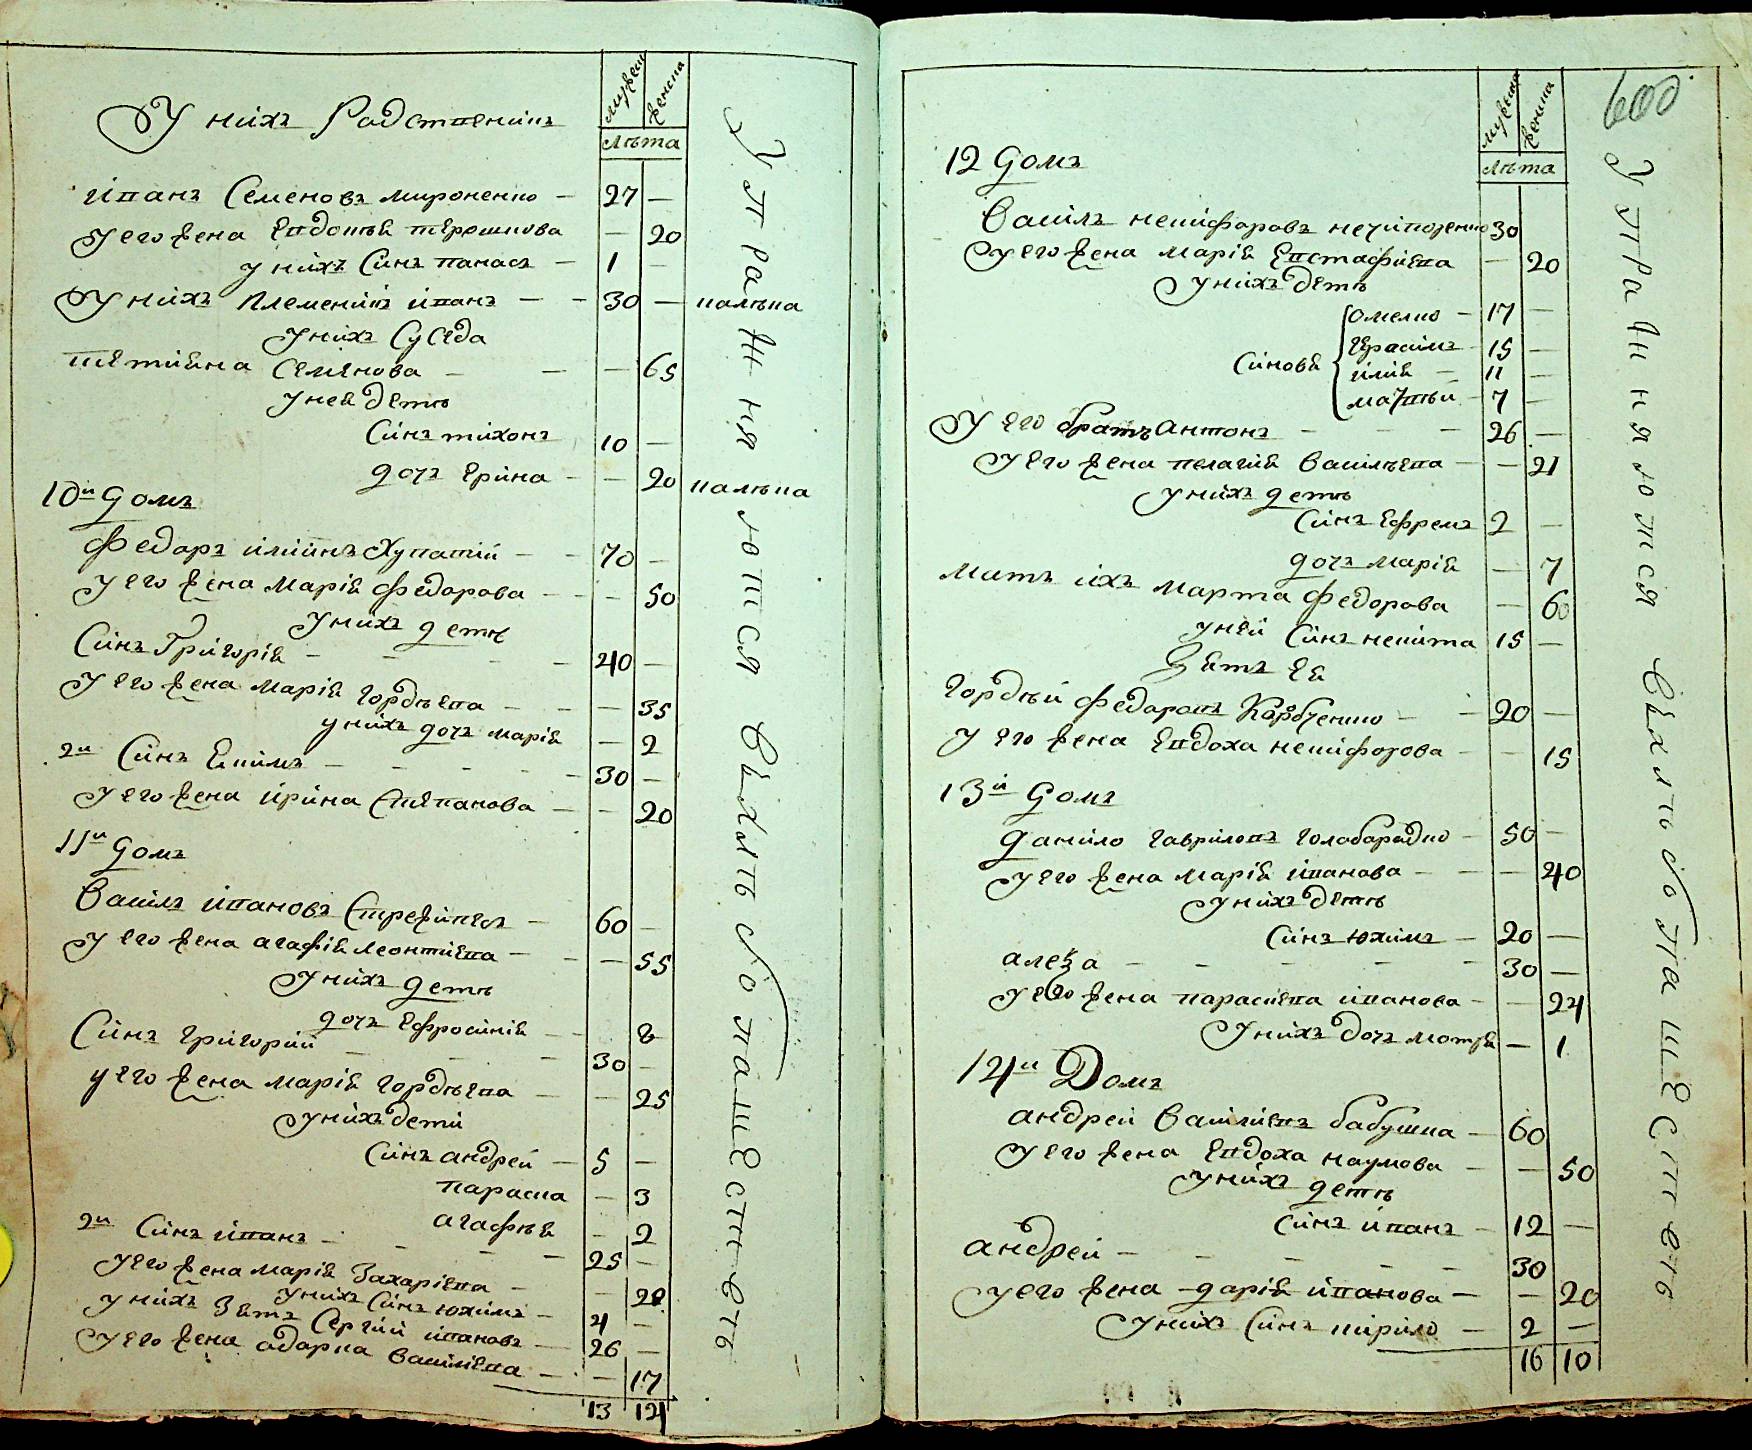 мужеска
женска
лѣта
У нихъ Родственикъ
іванъ Семеновъ мироненко — 27 —
У его жена Евдокія терешкова — 20
у нихъ Синъ панасъ — 1 —
У нихъ племеникъ іванъ — — 30 — калѣка
У нихъ Сусѣда
тетіяна Семенова — — — 65
У ней дети
Синъ тихонъ 10 —
дочъ Ерина — — 20 калѣка
10й домъ
Федоръ іліинъ — — 70 —
У его жена марія федорова — — — 50
У нихъ дети
Синъ Григорій — — — — 40 —
У его жена марія Гордѣева — — — 35
у нихъ дочъ марія — 2
2й Синъ Екимъ — — — — — 30 —
У его жена ирина Степанова — — 20
11й домъ
Василь івановъ — 60 —
У его жена агафія леонтіева — — — 55
У нихъ дети
дочъ Ефросинія — — 8
Синъ григорій — — — 30 —
у его жена марія гордѣева — — 25
У нихъ дети
Синъ андрей — 5 —
параска — 3
агафія — 2
2й Синъ іванъ — — — — 25 —
У его жена марія Захаріева — — 28
У нихъ Синъ юхимъ — 4 —
У нихъ Зять Сергій івановъ — 26 —
У его жена одарка Василіева — — 17
13 12
У пражняются
в хлѣбопашествѣ
600
мужеска
женска
лѣта
12 домъ
Василь никифоровъ нечипоренко 30
У его жена марія Евстафіева — 20
У нихъ дети
Синовя
омелко — 17 —
герасимъ — 15 —
илія — 11 —
матвѣй — 7 —
У его братъ антонъ — — — 26 —
У его жена пелагія Василѣева — — 21
У нихъ дети
Синъ Ефремъ 2 —
дочъ марія — 7
мать ихъ марта федорова — 60
у ней Синъ никита 15 —
Зять ея
Гордѣй федоровъ — — 20 —
У его жена Евдоха никифорова — — 15
13й домъ
данило гавриловъ голобородко — 50 —
У его жена марія іванова — — — 40
У нихъ дети
Синъ юхимъ — 20 —
алекса — — — — — 30 —
У его жена параскева іванова — — 24
У нихъ дочъ мотря — 1
14й Домъ
андрей Василіевъ бабушка — 60
У его жена Евдоха наумова — — 50
У нихъ дети
Синъ іванъ — 12 —
андрей — — — — — 30
У его жена дарія іванова — — 20
У нихъ Синъ кирило — 2 —
16 10
У пражняются
в хлѣбопашествѣ